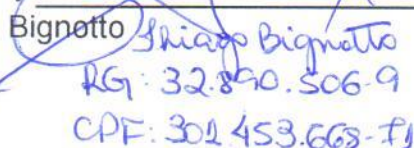 Bignotto Thiago Bignotto
RG: 32.890.506-9
CPF: 302.453.668-71